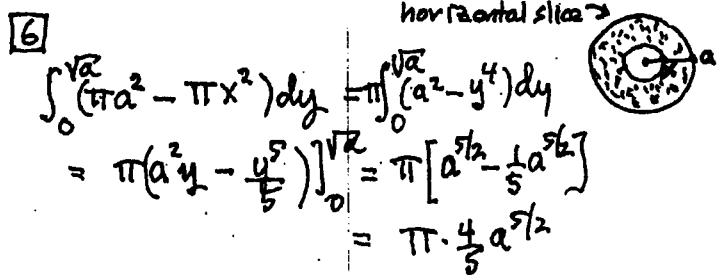 horizontal slice →
6
∫₀^√a (πa² − πx²)dy = π∫₀^√a (a² − y⁴)dy
= π(a²y − y⁵/5)]₀^√a = π[a^5/2 − 1/5 a^5/2]
= π · 4/5 a^5/2
x
a